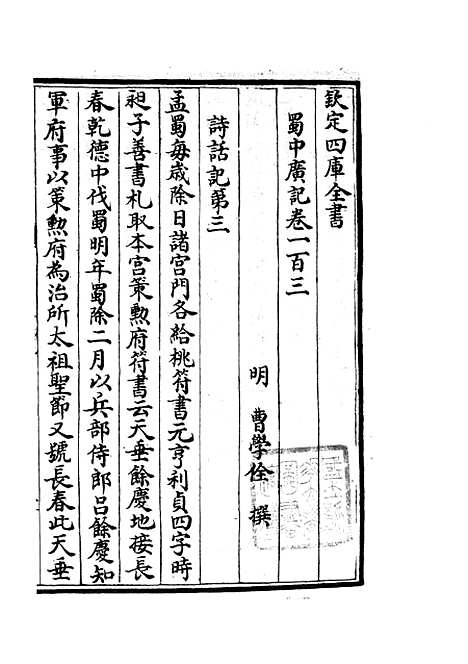 欽定四庫全書
蜀中廣記卷一百三
明 曹學佺 撰
詩話記第三
孟蜀每歲除日諸宫門各給桃符書元亨利貞四字時
昶子善書札取本宫策勲府符書云天垂餘慶地接長
春乾德中伐蜀明年蜀除二月以兵部侍郎吕餘慶知
軍府事以策勲府為治所太祖聖節又號長春此天垂